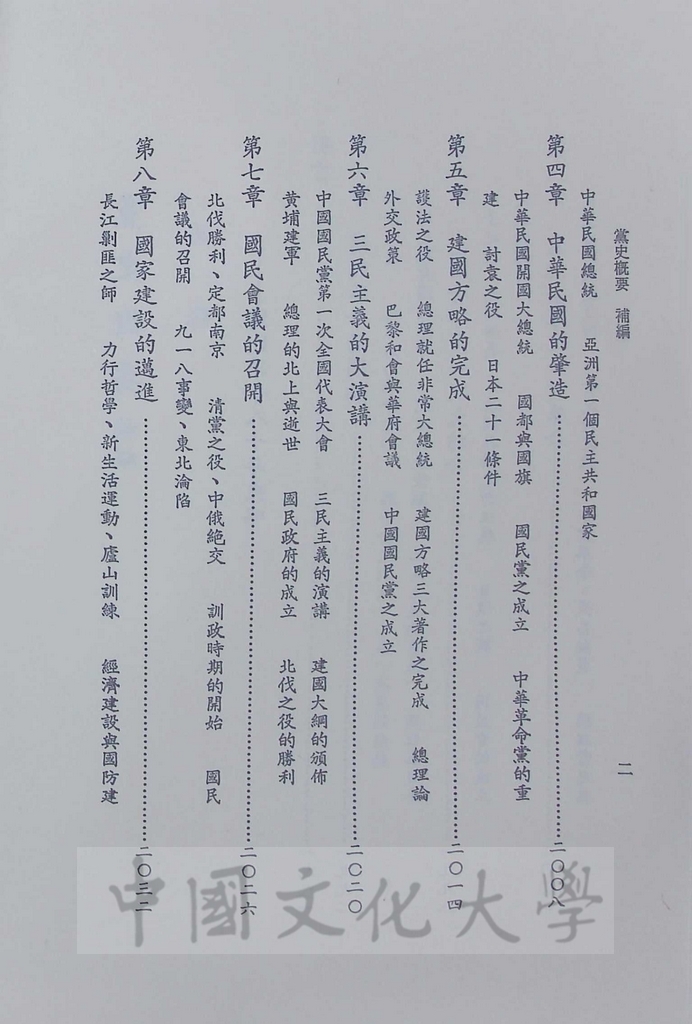 黨史概要　補編
二
中華民國總統　亞洲第一個民主共和國家
第四章　中華民國的肇造……………………二〇〇八
中華民國開國大總統　國都與國旗　國民黨之成立　中華革命黨的重
建　討袁之役　日本二十一條件
第五章　建國方略的完成……………………二〇一四
護法之役　總理就任非常大總統　建國方略三大著作之完成　總理論
外交政策　巴黎和會與華府會議　中國國民黨之成立
第六章　三民主義的大演講……………………二〇二〇
中國國民黨第一次全國代表大會　三民主義的演講　建國大綱的頒佈
黃埔建軍　總理的北上與逝世　國民政府的成立　北伐之役的勝利
第七章　國民會議的召開……………………二〇二六
北伐勝利、定都南京　清黨之役、中俄絕交　訓政時期的開始　國民
會議的召開　九一八事變、東北淪陷
第八章　國家建設的邁進……………………二〇三二
長江剿匪之師　力行哲學、新生活運動、廬山訓練　經濟建設與國防建
中國文化大學